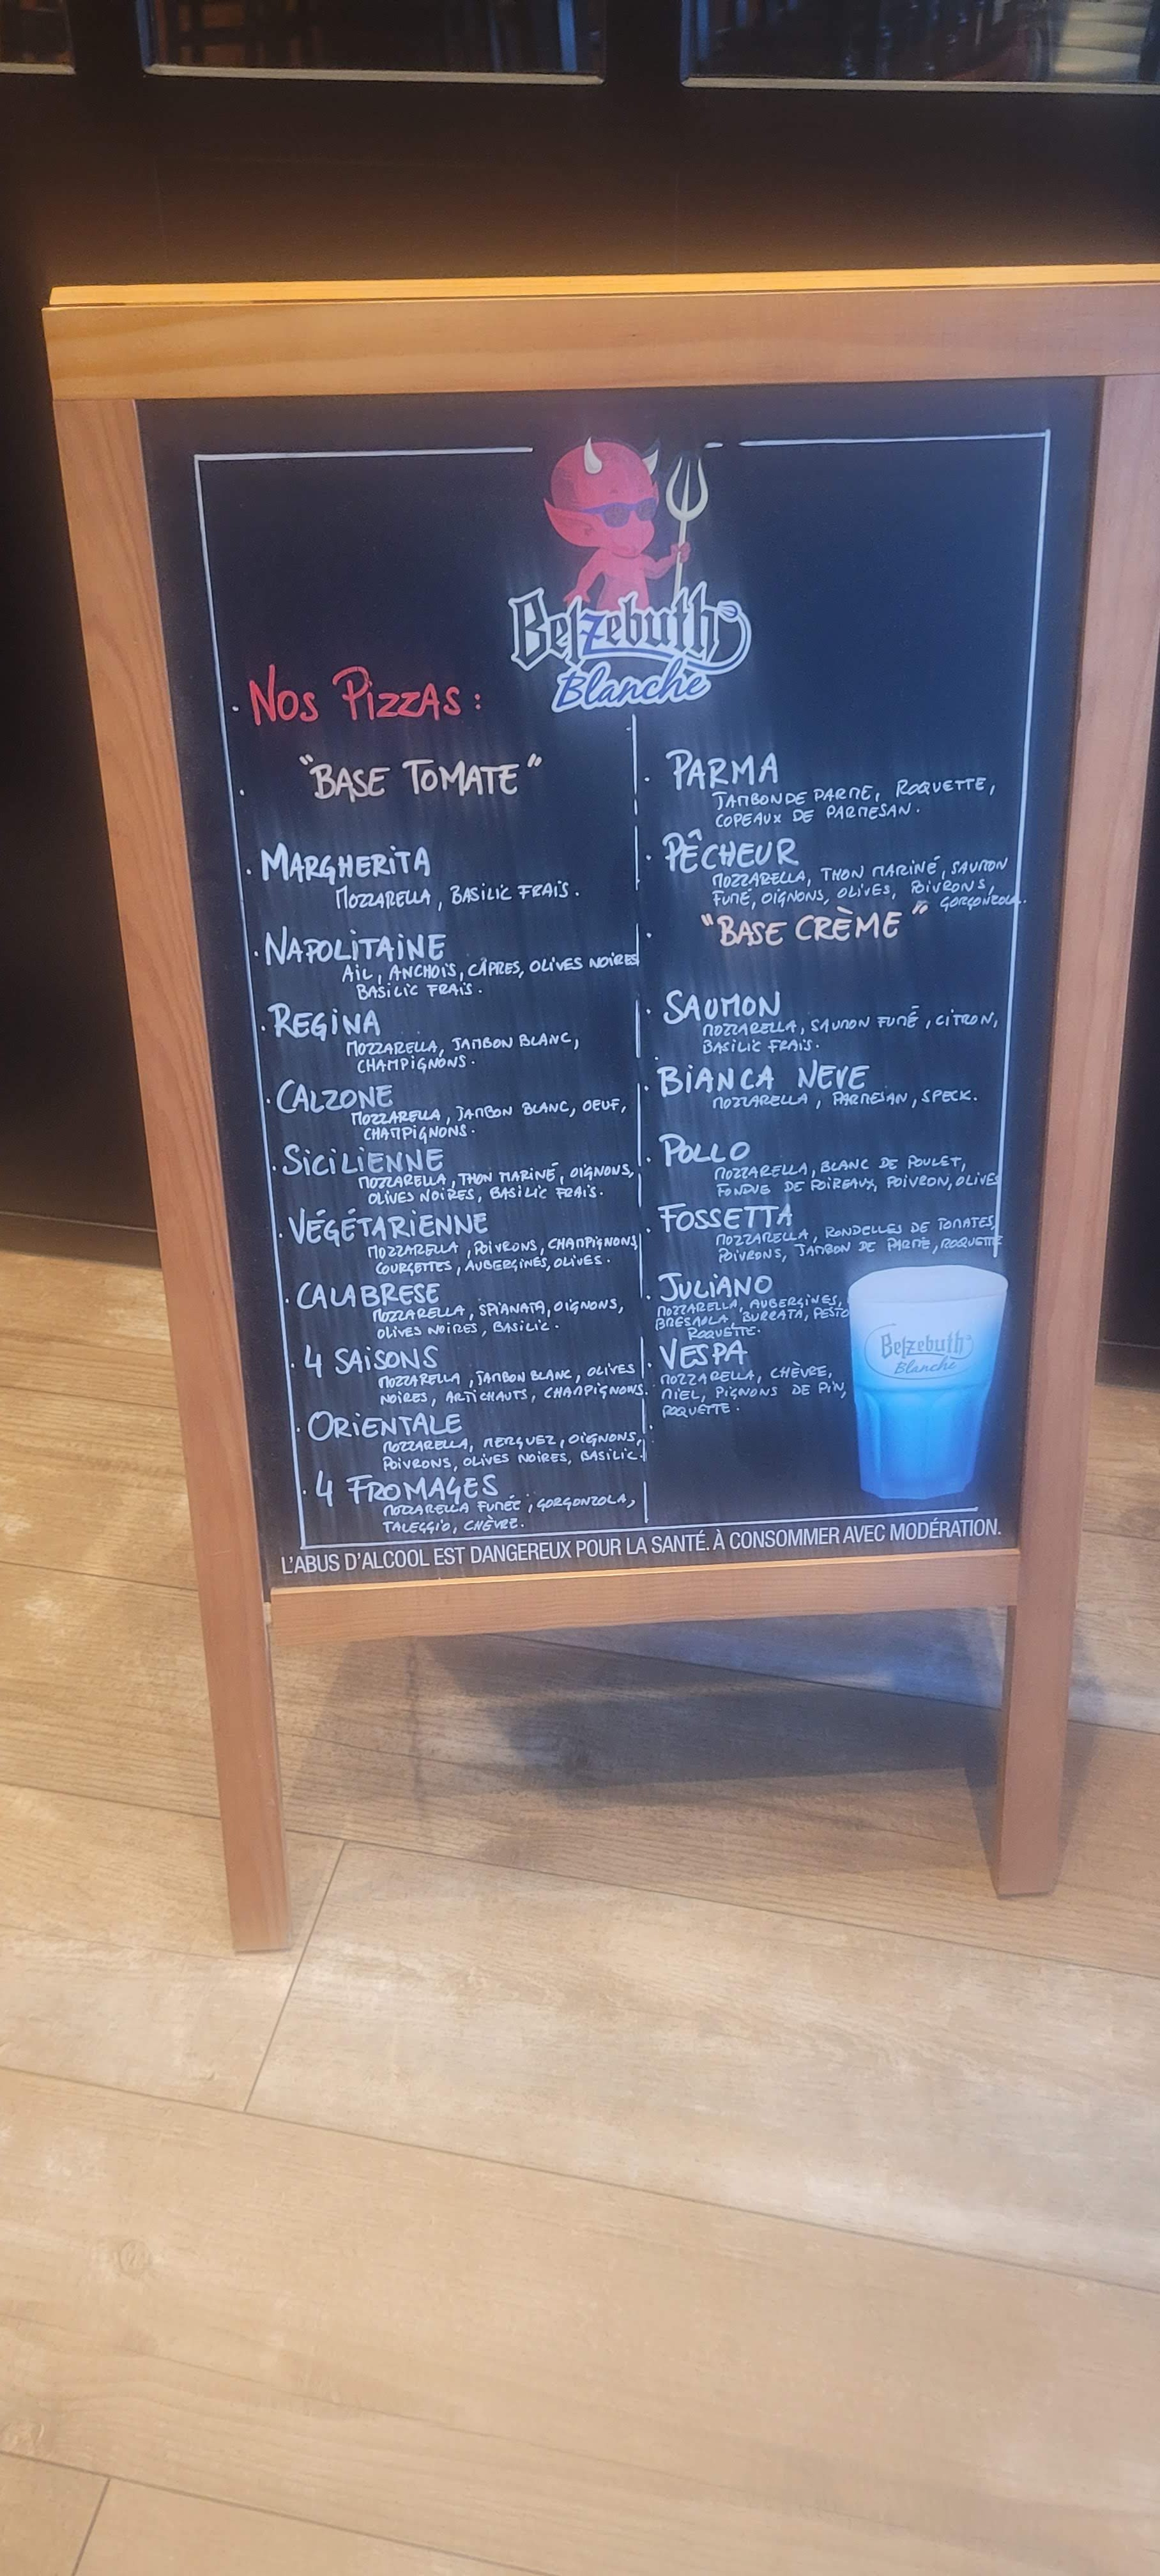 Belzebuth
Blanche
Nos Pizzas :
"BASE TOMATE"
MARGHERITA
MOZZARELLA, BASILIC FRAIS.
NAPOLITAINE
AIL, ANCHOIS, CÂPRES, OLIVES NOIRES
BASILIC FRAIS.
REGINA
MOZZARELLA, JAMBON BLANC,
CHAMPIGNONS.
CALZONE
MOZZARELLA, JAMBON BLANC, OEUF,
CHAMPIGNONS.
SICILIENNE
MOZZARELLA, THON MARINÉ, OIGNONS,
OLIVES NOIRES, BASILIC FRAIS.
VÉGÉTARIENNE
MOZZARELLA, POIVRONS, CHAMPIGNONS,
COURGETTES, AUBERGINES, OLIVES.
CALABRESE
MOZZARELLA, SPIANATA, OIGNONS,
OLIVES NOIRES, BASILIC.
4 SAISONS
MOZZARELLA, JAMBON BLANC, OLIVES
NOIRES, ARTICHAUTS, CHAMPIGNONS.
ORIENTALE
MOZZARELLA, MERGUEZ, OIGNONS,
POIVRONS, OLIVES NOIRES, BASILIC.
4 FROMAGES
MOZZARELLA FUMÉE, GORGONZOLA,
TALEGGIO, CHÈVRE.
PARMA
JAMBON DE PARME, ROQUETTE,
COPEAUX DE PARMESAN.
PÊCHEUR
MOZZARELLA, THON MARINÉ, SAUMON
FUMÉ, OIGNONS, OLIVES, POIVRONS,
GORGONZOLA.
"BASE CRÈME"
SAUMON
MOZZARELLA, SAUMON FUMÉ, CITRON,
BASILIC FRAIS.
BIANCA NEVE
MOZZARELLA, PARMESAN, SPECK.
POLLO
MOZZARELLA, BLANC DE POULET,
FONDUE DE POIREAUX, POIVRON, OLIVES
FOSSETTA
MOZZARELLA, RONDELLES DE TOMATES,
POIVRONS, JAMBON DE PARME, ROQUETTE
JULIANO
MOZZARELLA, AUBERGINES,
BRESAOLA, BURRATA, PESTO
ROQUETTE.
VESPA
MOZZARELLA, CHÈVRE,
MIEL, PIGNONS DE PIN,
ROQUETTE.
Belzebuth
Blanche
L'ABUS D'ALCOOL EST DANGEREUX POUR LA SANTÉ. À CONSOMMER AVEC MODÉRATION.